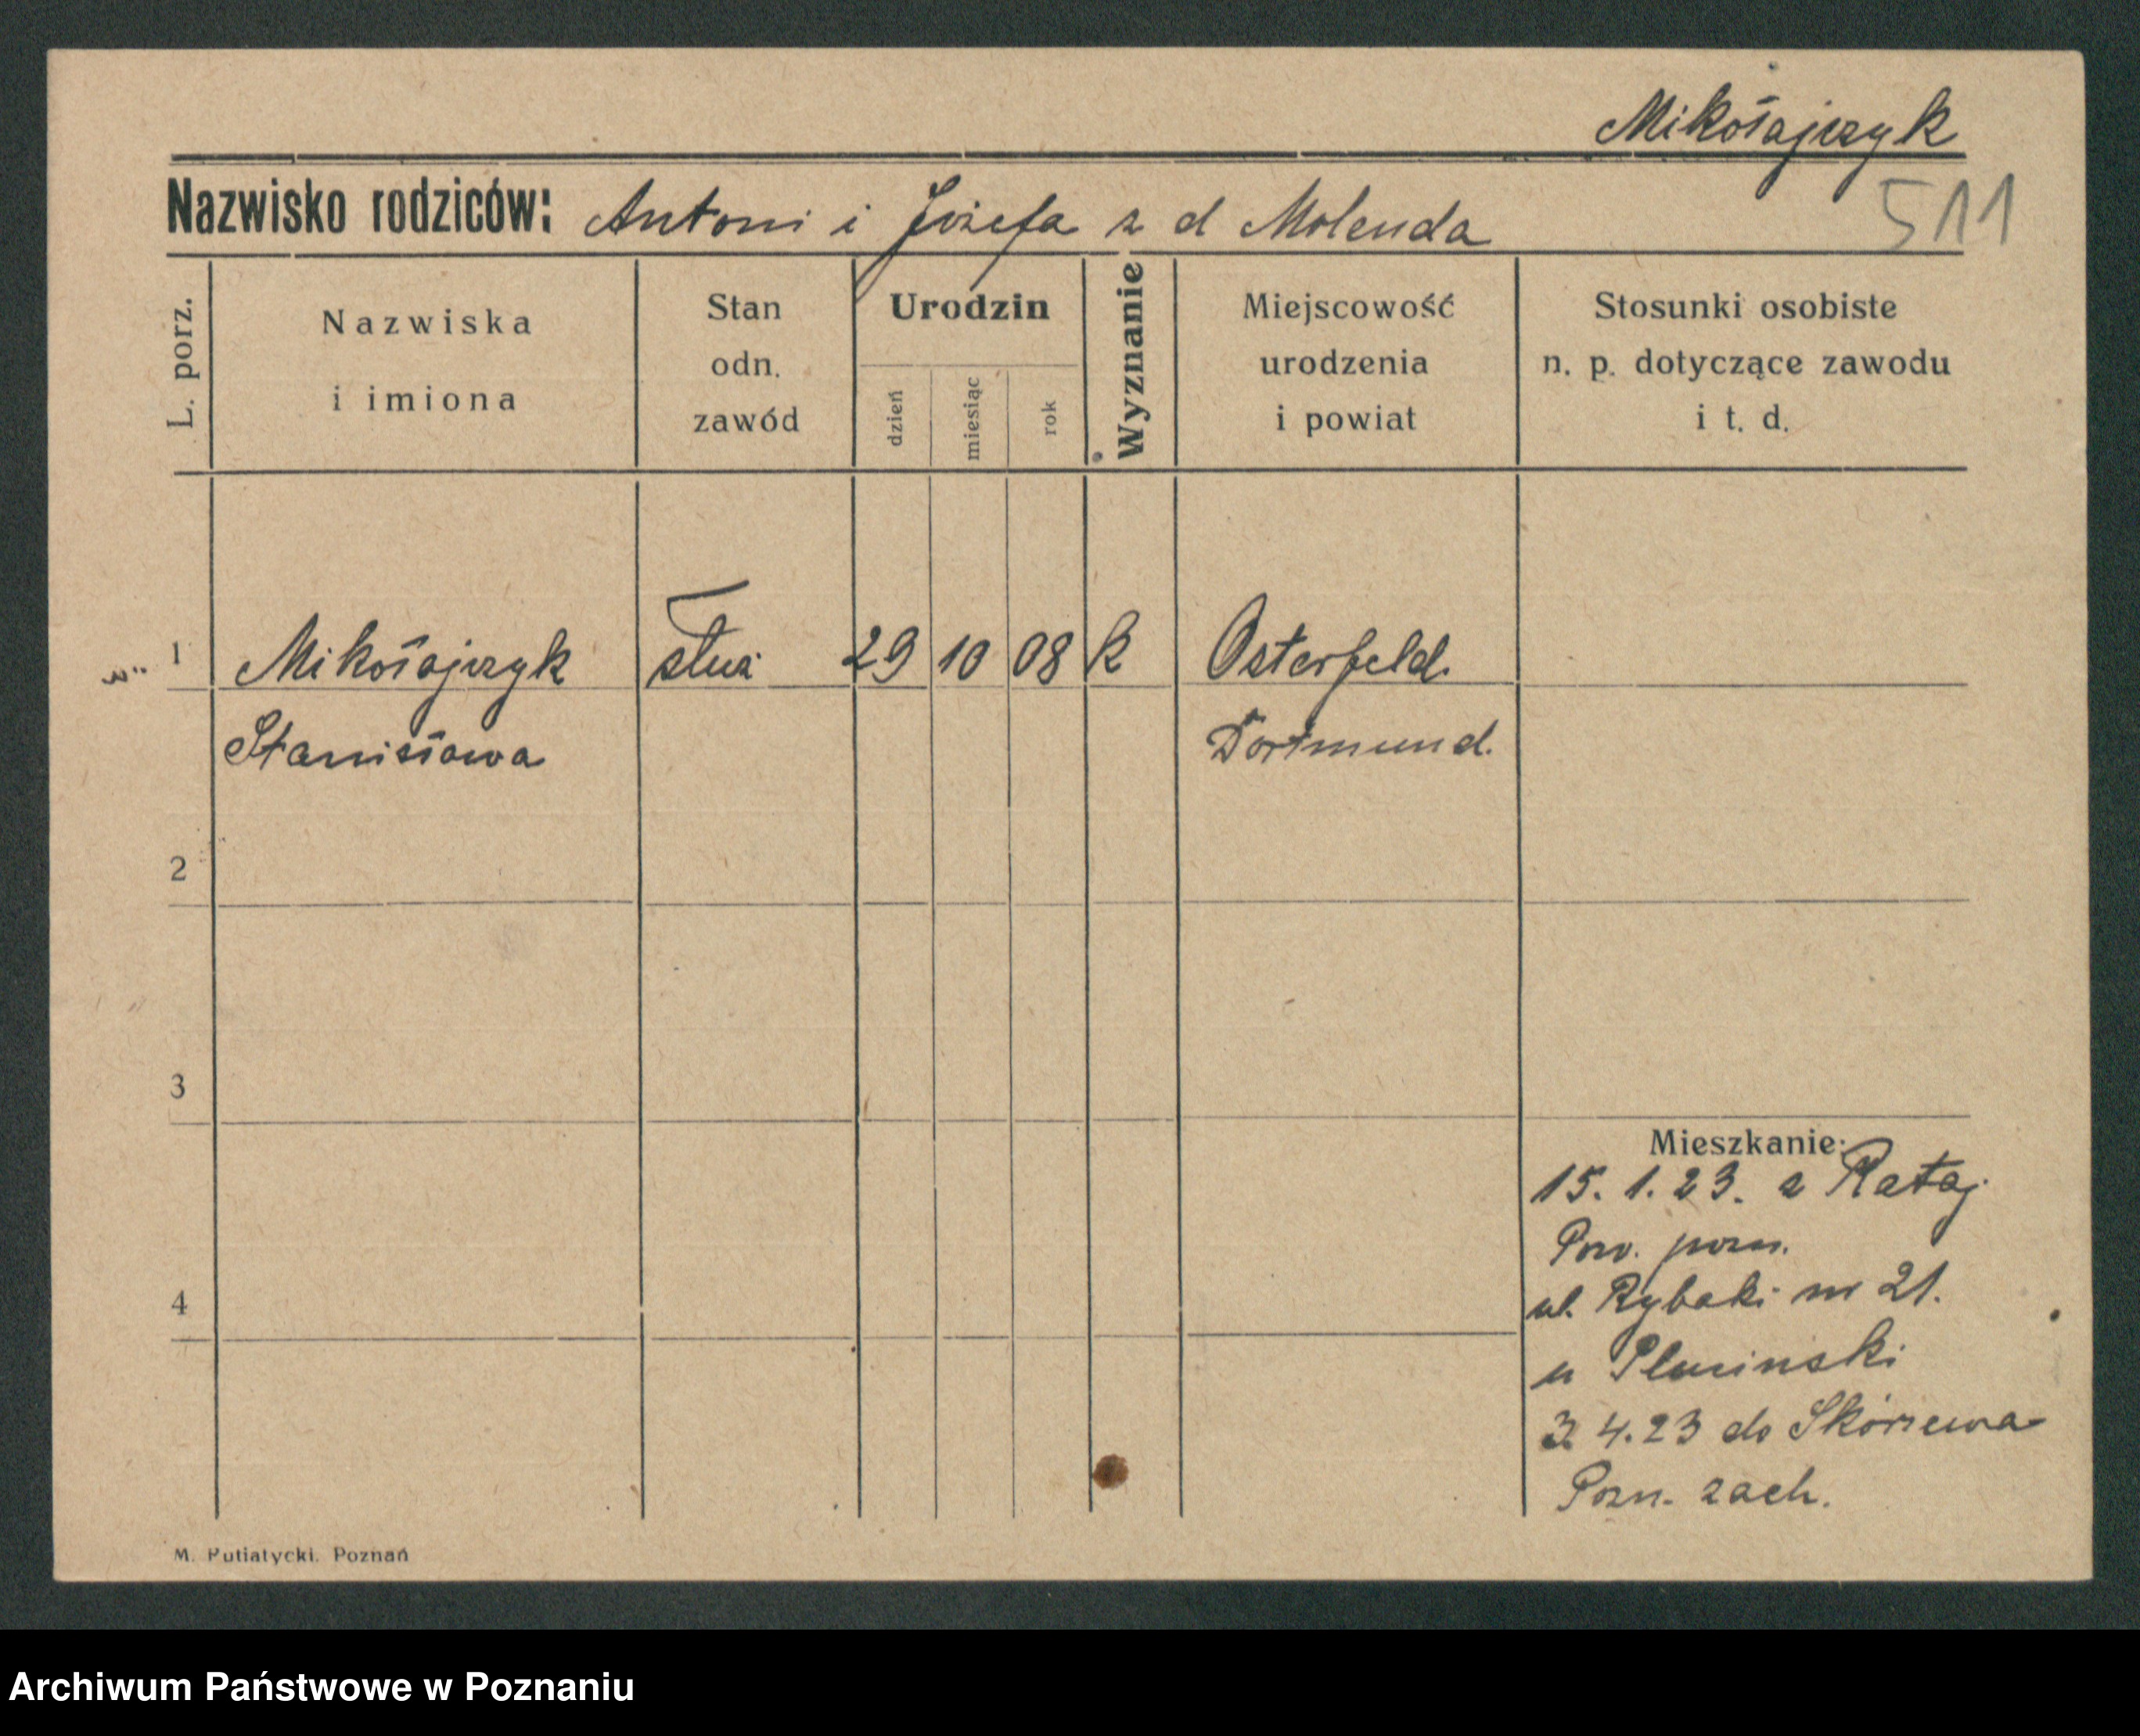 Mikołajczyk
Nazwisko rodziców: Antoni i Józefa z d Molenda
511
L. porz.
Nazwiska
i imiona
Stan
odn.
zawód
Urodzin
dzień
miesiąc
rok
Wyznanie
Miejscowość
urodzenia
i powiat
Stosunki osobiste
n. p. dotyczące zawodu
i t. d.
1 Mikołajczyk służ 29 10 08 k Osterfeld.
Stanisława Dortmund.
2
3
4
Mieszkanie:
15. 1. 23. z Rataj
Pow. pozn.
ul. Rybaki nr 21.
u Pluciński
3. 4. 23 do Skórzewa
Pozn. zach.
M. Putiatycki. Poznań
Archiwum Państwowe w Poznaniu